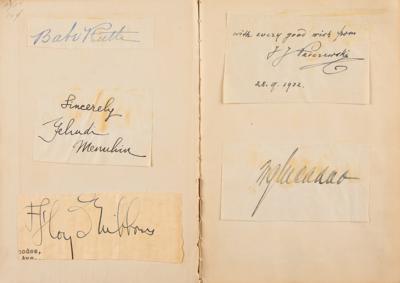 Babe Ruth
Sincerely
Yehudi
Menuhin
Floyd Gibbons
with every good wish from
I J Paderewski
28.9.1922.